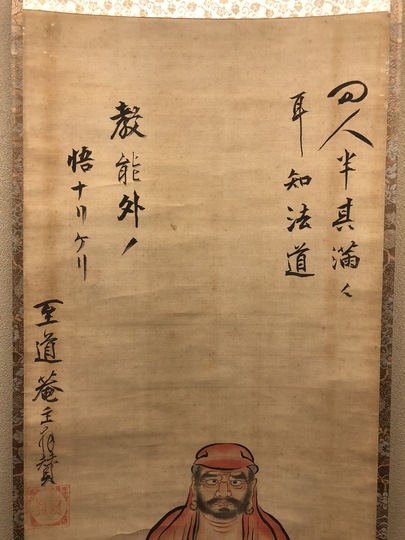 人半其満々
耳知法道
教能外ノ
悟ナリケリ
至道菴主拝賛